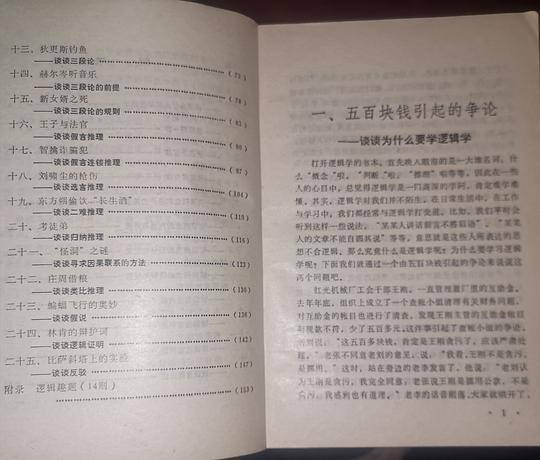 十三、狄更斯钓鱼
——谈谈三段论 (73)
十四、赫尔岑听音乐
——谈谈三段论的前提 (78)
十五、新女婿之死
——谈谈三段论的规则
十六、王子与法官
——谈谈假言推理
十七、智擒诈骗犯
——谈谈假言连锁推理
十八、刘啸尘的枪伤
——谈谈选言推理
十九、东方朔偷饮“长生酒”
——谈谈二难推理
二十、考徒弟
——谈谈归纳推理 (116)
二十一、“怪洞”之谜
——谈谈寻求因果联系的方法 (123)
二十二、庄周借粮
——谈谈类比推理
二十三、蝙蝠飞行的奥妙
——谈谈假说
二十四、林肯的辩护词
——谈谈逻辑证明 (142)
二十五、比萨斜塔上的实验
——谈谈反驳 (147)
附录 逻辑趣题(14则)
(153)
一、五百块钱引起的争论
——谈谈为什么要学逻辑学
打开逻辑学的书本，首先映入眼帘的是一大堆名词，什
么“概念”啦，“判断”啦，“推理”啦等等，因此在一些
人的心目中，总觉得逻辑学是一门高深的学问，肯定难学难
懂。其实，逻辑学对我们并不陌生，在日常生活中，在工作
与学习中，我们都经常与逻辑学打交道。比如，我们平时会
听到这样一些说法，“某某人讲话前言不搭后语”、“某某
人的文章不能自圆其说”等等，意思就是这些人所表达的思
想不合逻辑。那么究竟什么是逻辑学呢？为什么要学习逻辑
学呢？下面我们就通过一个由五百块钱引起的争论来谈谈这
两个问题吧。
红光机械厂工会干部王刚，一直管理着厂里的互助金。
去年年底，组织上成立了一个查账小组清理有关财务问题。
对互助金的帐目也进行了清查。发现王刚主管的互助金帐目
与现款不符，少了五百多元。这件事引起了查账小组的争论。
老刘说：“这五百多块钱，肯定是王刚贪污了，应该严肃处
理。”老张不同意老刘的意见，说：“我看，王刚不是贪污，
是挪用。”这时，站在旁边的老李发言了，他说：“老刘认
为王刚是贪污，我完全同意；老张说王刚是挪用公款，不是
贪污，我感到也有道理。”老李的话音刚落，大家就哄开了，
·1·